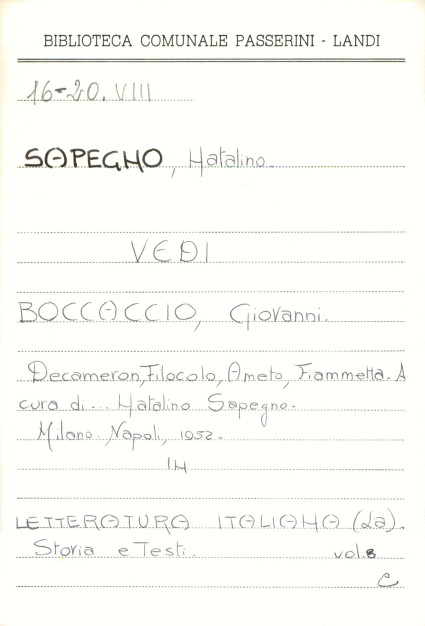 BIBLIOTECA COMUNALE PASSERINI - LANDI
16-20. VIII
SAPEGNO, Natalino.
VEDI
BOCCACCIO, Giovanni.
Decameron, Filocolo, Ameto, Fiammetta. A
cura di... Natalino Sapegno.
Milano. Napoli, 1952.
IN
LETTERATURA ITALIANA (La).
Storia e Testi. vol. 8
C